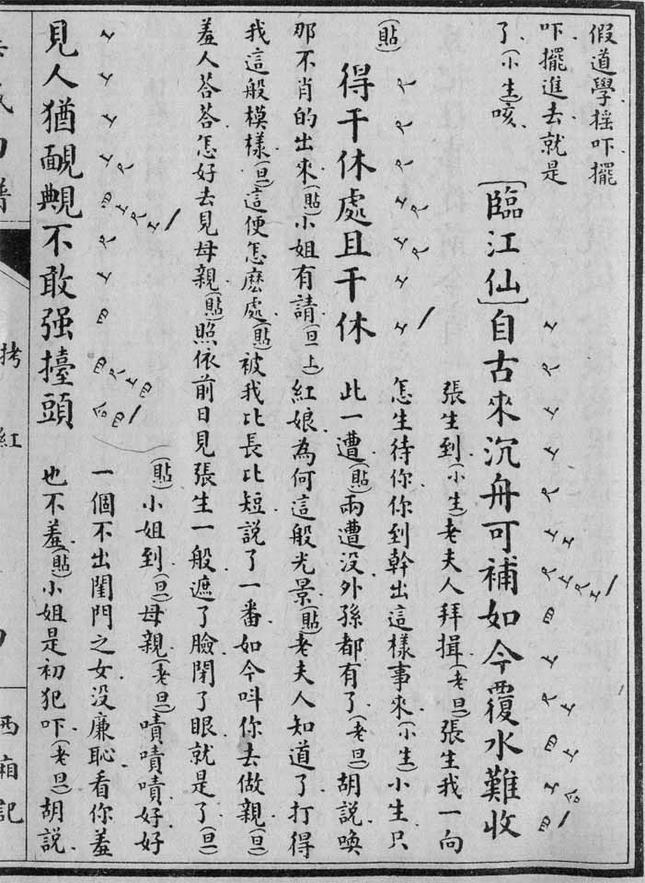 假道學搖吓擺
吓擺進去就是
了(小生)咳
〔臨江仙〕自古來沉舟可補如今覆水難收
(貼)得干休處且干休
張生到(小生)老夫人拜揖(老旦)張生我一向
怎生待你你到幹出這樣事來(小生)小生只
此一遭(貼)兩遭没外孫都有了(老旦)胡說喚
那不肖的出來(貼)小姐有請(旦上)紅娘為何這般光景(貼)老夫人知道了打得
我這般模樣(旦)這便怎麽處(貼)被我比長比短說了一番如今叫你去做親(旦)
羞人荅荅怎好去見母親(貼)照依前日見張生一般遮了臉閉了眼就是了(旦)
見人猶靦覥不敢强擡頭
(貼)小姐到(旦)母親(老旦)嘖嘖嘖好好
一個不出閨門之女没廉恥看你羞
也不羞(貼)小姐是初犯吓(老旦)胡說
拷紅
西廂記